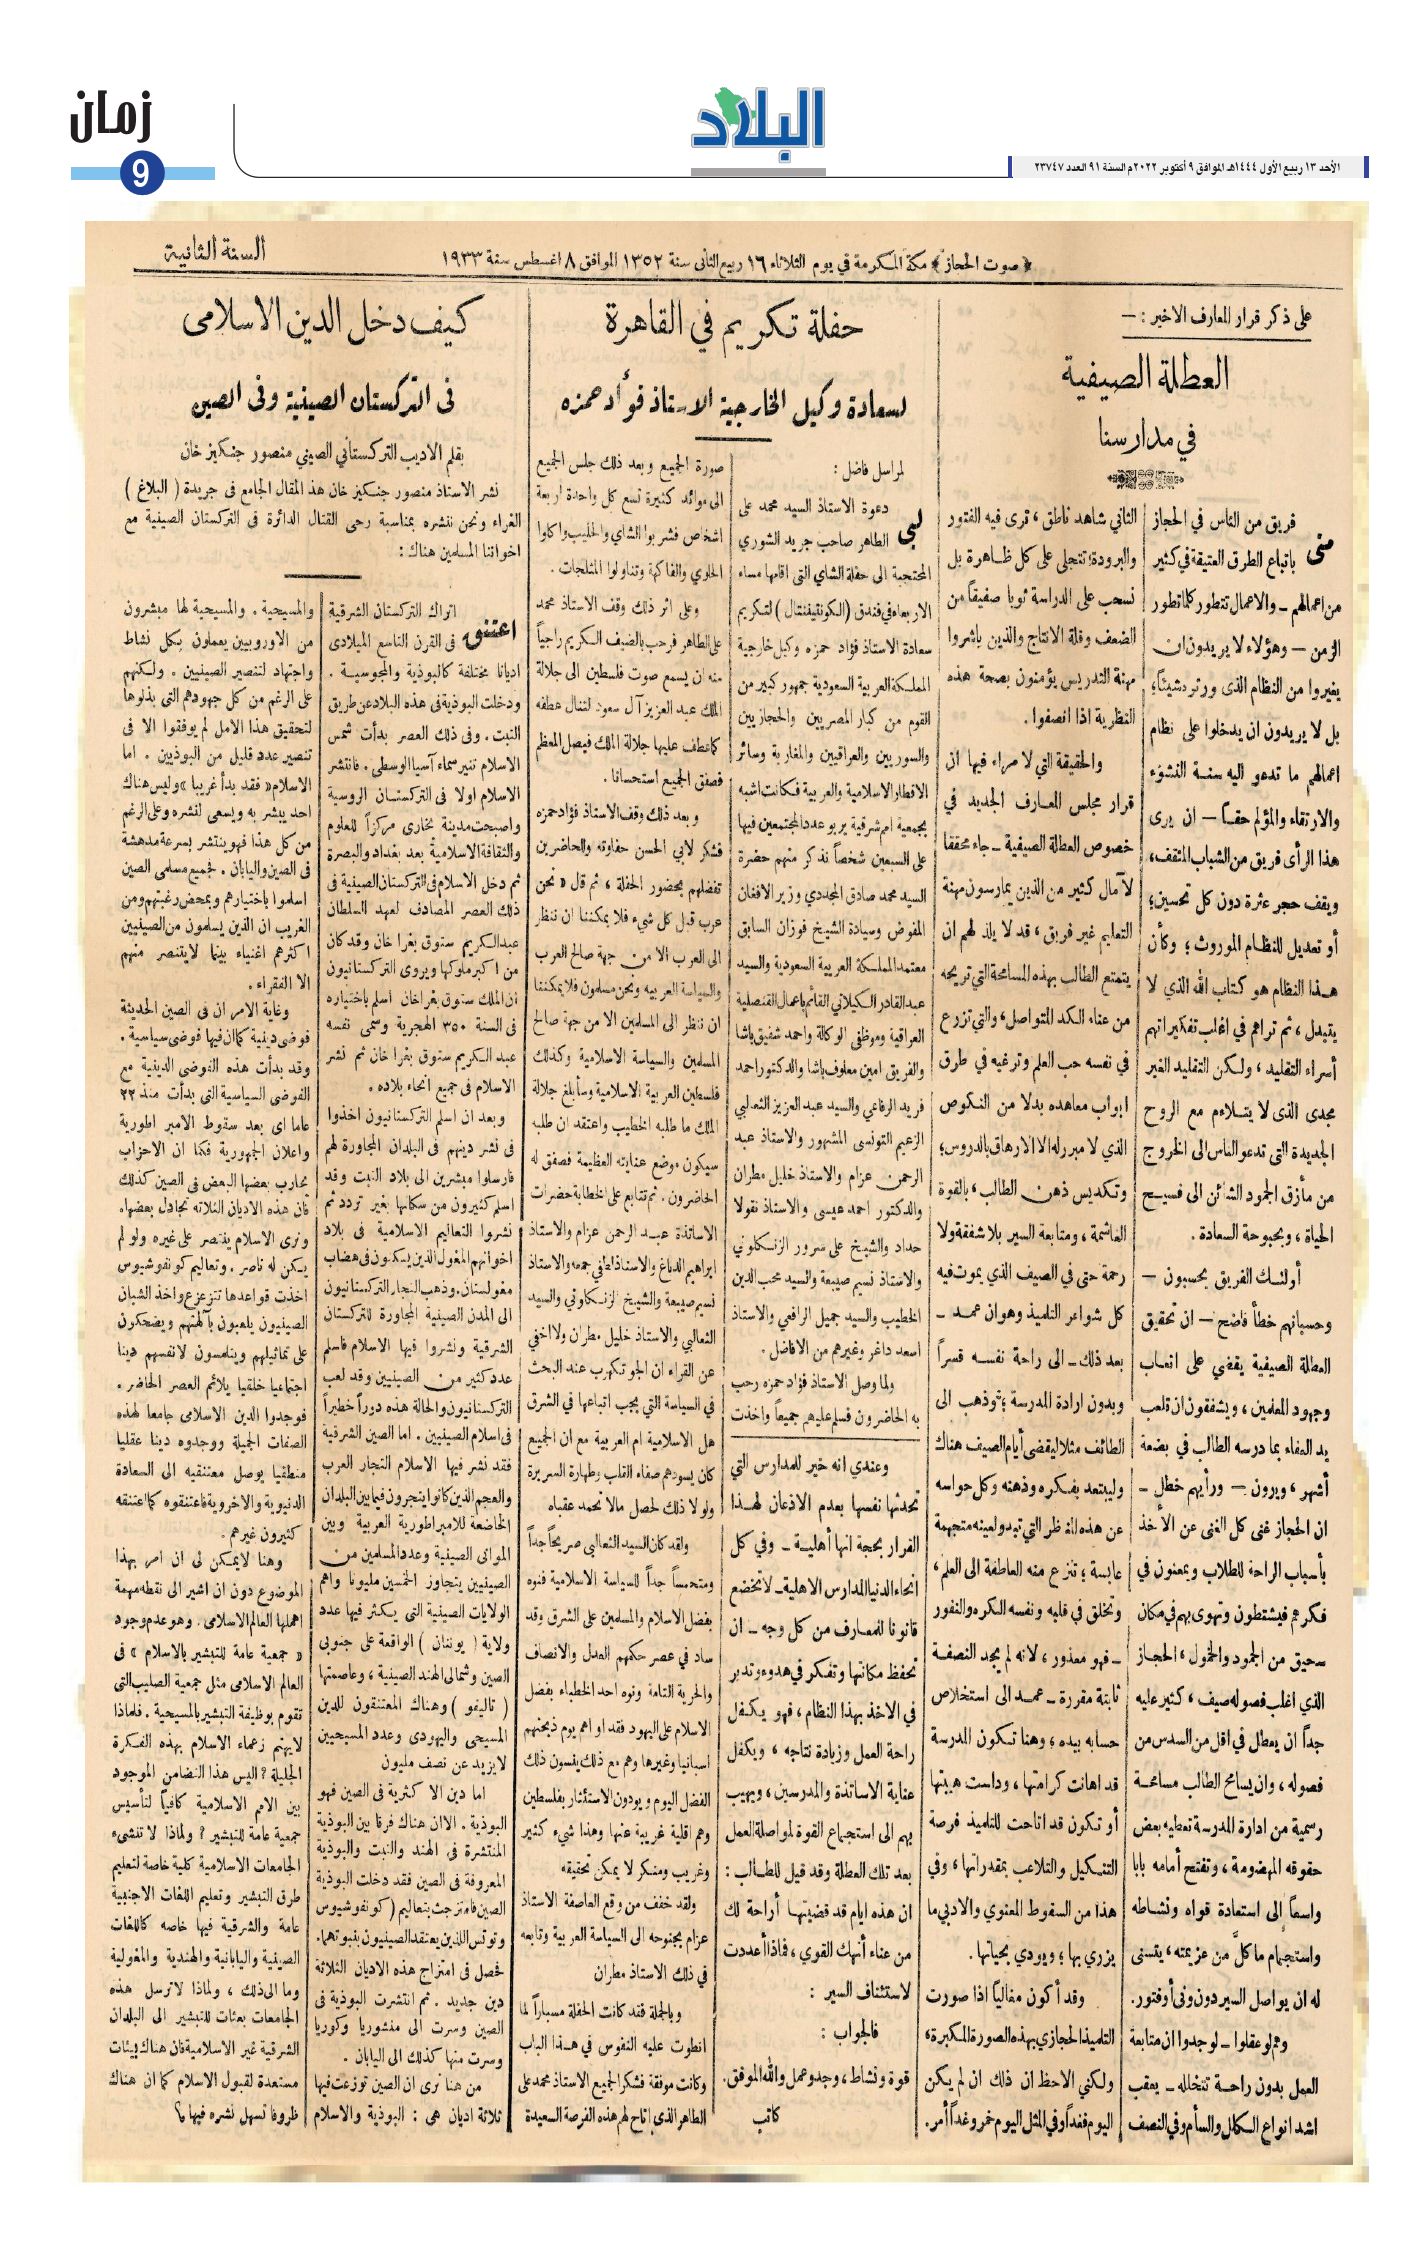 زمان
9
البلاد
الأحد ١٣ ربيع الأول ١٤٤٤هـ الموافق ٩ أكتوبر ٢٠٢٢م السنة ٩١ العدد ٢٣٧٤٧
﴿ صوت الحجاز ﴾ مكة المكرمة في يوم الثلاثاء ١٦ ربيع الثانى سنة ١٣٥٢ الموافق ٨ اغسطس سنة ١٩٣٣
السنة الثانية
على ذكر قرار المعارف الاخير : —
العطلة الصيفية
في مدارسنا
منى فريق من الناس في الحجاز
باتباع الطرق العتيقة في كثير
من اعمالهم — والاعمال تتطور كلما تطور
الزمن — وهؤلاء لا يريدون ان
يغيروا من النظام الذى ورثوه شيئاً؛
بل لا يريدون ان يدخلوا على نظام
اعمالهم ما تدعو اليه سنة النشوء
والارتقاء والمؤلم حقاً — ان يرى
هذا الرأى فريق من الشباب المثقف،
ويقف حجر عثرة دون كل تحسين؛
أو تعديل للنظام الموروث ؛ وكأن
هذا النظام هو كتاب الله الذي لا
يتبدل ، ثم تراهم في اغلب تفكيراتهم
أسراء التقليد ، ولكن التقليد الغير
مجدى الذى لا يتلاءم مع الروح
الجديدة التى تدعو الناس الى الخروج
من مأزق الجمود الشائن الى فسيح
الحياة ، وبحبوحة السعادة .
أولئك الفريق يحسبون —
وحسبانهم خطأ فاضح — ان تحقيق
العطلة الصيفية يقضي على اتعاب
وجهود المعلمين ، ويشفقون ان تلعب
يد العفاء بما درسه الطالب في بضعة
أشهر ، ويرون — ورأيهم خطل —
ان الحجاز غنى كل الغنى عن الأخذ
بأسباب الراحة للطلاب ويمعنون في
فكرهم فيشتطون وتهوى بهم في مكان
سحيق من الجمود والخمول ، الحجاز
الذي اغلب فصوله صيف ، كثير عليه
جداً ان يعطل في اقل من السدس من
فصوله ، وان يسامح الطالب مسامحة
رسمية من ادارة المدرسة تعطيه بعض
حقوقه المهضومة ، وتفتح أمامه بابا
واسعاً إلى استعادة قواه ونشاطه
واستجمام ما كلّ من عزيمته ، يتسنى
له ان يواصل السير دون ونى أو فتور.
وهم لو عقلوا — لوجدوا ان متابعة
العمل بدون راحة تتخلله — يعقب
اشد انواع الكلل والسأم وفي النصف
الثاني شاهد ناطق ، ترى فيه الفتور
والبرودة؛ تتجلى على كل ظاهرة بل
تسحب على الدراسة ثوبا صفيقاً من
الضعف وقلة الانتاج والذين باشروا
مهنة التدريس يؤمنون بصحة هذه
النظرية اذا انصفوا .
والحقيقة التي لا مراء فيها ان
قرار مجلس المعارف الجديد في
خصوص العطلة الصيفية — جاء محققا
لآمال كثير من الذين يمارسون مهنة
التعليم غير فريق ، قد لا يلذ لهم ان
يتمتع الطالب بهذه المسامحة التي تريحه
من عناء الكد المتواصل ، والتي تزرع
في نفسه حب العلم وترغبه في طرق
ابواب معاهده بدلا من النكوص
الذي لا مبرر له الا الارهاق بالدروس؛
وتكديس ذهن الطالب ، بالقوة
الغاشمة ، ومتابعة السير بلا شفقة ولا
رحمة حتى في الصيف الذي يموت فيه
كل شواعر التلميذ وهوان عمد —
بعد ذلك — الى راحة نفسه قسراً
وبدون ارادة المدرسة ؛ وذهب الى
الطائف مثلا ليقضى أيام الصيف هناك
وليبتعد بفكره وذهنه وكل حواسه
عن هذه المناظر التي تبدو لعينه متجهمة
عابسة ؛ تنزع منه العاطفة الى العلم ،
وتخلق في قلبه ونفسه الكره والنفور
— فهو معذور ، لانه لم يجد النصفة
ثابتة مقررة — عمد الى استخلاص
حسابه بيده ؛ وهنا تكون المدرسة
قد اهانت كرامتها ، وداست هيبتها
أو تكون قد اتاحت للتلميذ فرصة
التنكيل والتلاعب بمقدراتها ، وفي
هذا من السقوط المعنوي والادبي ما
يزري بها ؛ ويودي بحياتها .
وقد أكون مغالياً اذا صورت
التلميذ الحجازي بهذه الصورة المكبرة،
ولكني الاحظ ان ذلك ان لم يكن
اليوم فغداً وفي المثل اليوم خمر وغداً أمر.
وعندي انه خير للمدارس التي
تحدثها نفسها بعدم الاذعان لهذا
القرار بحجة انها أهلية — وفي كل
انحاء الدنيا المدارس الاهلية — لا تخضع
قانونا للمعارف من كل وجه — ان
تحفظ مكانتها وتفكر في هدوء وتدبر
في الاخذ بهذا النظام ، فهو يكفل
راحة العمل وزيادة نتاجه ، ويكفل
عناية الاساتذة والمدرسين ، ويهيب
بهم الى استجماع القوة لمواصلة العمل
بعد تلك العطلة وقد قيل للطالب :
ان هذه ايام قد قضيتها أراحة لك
من عناء أنهك القوي ، فماذا أعددت
لاستئناف السير :
فالجواب :
قوة ونشاط ، وجد وعمل والله الموفق.
كاتب
حفلة تكريم في القاهرة
لسعادة وكيل الخارجية الاستاذ فؤاد حمزه
لمراسل فاضل :
لبي دعوة الاستاذ السيد محمد على
الطاهر صاحب جريد الشورى
المحتجبة الى حفلة الشاي التي اقامها مساء
الاربعاء في فندق (الكونتيننتال) لتكريم
سعادة الاستاذ فؤاد حمزه وكيل خارجية
المملكة العربية السعودية جمهور كبير من
القوم من كبار المصريين والحجازيين
والسوريين والعراقيين والمغاربة وسائر
الاقطار الاسلامية والعربية فكانت اشبه
بجمعية ام شرقية يربو عدد المجتمعين فيها
على السبعين شخصاً نذكر منهم حضرة
السيد محمد صادق المجددي وزير الافغان
المفوض وسيادة الشيخ فوزان السابق
معتمد المملكة العربية السعودية والسيد
عبد القادر الكيلاني القائم باعمال القنصلية
العراقية وموظفى الوكالة واحمد شفيق باشا
والفريق امين معلوف باشا والدكتور احمد
فريد الرفاعي والسيد عبد العزيز الثعالبي
الزعيم التونسى المشهور والاستاذ عبد
الرحمن عزام والاستاذ خليل مطران
والدكتور احمد عيسى والاستاذ نقولا
حداد والشيخ على سرور الزنكلوني
والاستاذ نسيم صيبعة والسيد محب الدين
الخطيب والسيد جميل الرافعي والاستاذ
اسعد داغر وغيرهم من الافاضل .
ولما وصل الاستاذ فؤاد حمزه رحب
به الحاضرون فسلم عليهم جميعاً واخذت
صورة الجميع وبعد ذلك جلس الجميع
الى موائد كثيرة تسع كل واحدة اربعة
اشخاص فشربوا الشاي والحليب واكلوا
الحلوي والفاكهة وتناولوا المثلجات .
وعلى اثر ذلك وقف الاستاذ محمد
على الطاهر فرحب بالضيف الكريم راجياً
منه ان يسمع صوت فلسطين الى جلالة
الملك عبد العزيز آل سعود لتنال عطفه
كما عطف عليها جلالة الملك فيصل المعظم
فصفق الجميع استحسانا .
وبعد ذلك وقف الاستاذ فؤاد حمزه
فشكر لابي الحسن حفاوته والحاضرين
تفضلهم بحضور الحفلة ، ثم قال « نحن
عرب قبل كل شيء فلا يمكننا ان ننظر
الى العرب الا من جهة صالح العرب
والسياسة العربيه ونحن مسلمون فلا يمكننا
ان ننظر الى المسلمين الا من جهة صالح
المسلمين والسياسة الاسلامية وكذلك
فلسطين العربية الاسلامية وسأبلغ جلالة
الملك ما طلبه الخطيب واعتقد ان طلبه
سيكون موضع عنايته العظيمة فصفق له
الحاضرون . ثم تتابع على الخطابة حضرات
الاساتذة عبد الرحمن عزام والاستاذ
ابراهيم الدباغ والاستاذ لطفي جمعه والاستاذ
نسيم صيبعة والشيخ الزنكلوني والسيد
الثعالبي والاستاذ خليل مطران ولا اخفي
عن القراء ان الجو تكهرب عند البحث
في السياسة التي يجب اتباعها في الشرق
هل الاسلامية ام العربية مع ان الجميع
كان يسودهم صفاء القلب وطهارة السريرة
ولولا ذلك لحصل مالا تحمد عقباه
ولقد كان السيد الثعالبى صريحاً جداً
ومتحمساً جداً للسياسة الاسلامية فنوه
بفضل الاسلام والمسلمين على الشرق وقد
ساد في عصر حكمهم العدل والانصاف
والحرية التامة ونوه احد الخطباء بفضل
الاسلام على اليهود فقد اواهم يوم ذبحتهم
اسبانيا وغيرها وهم مع ذلك ينسون ذلك
الفضل اليوم ويودون الاستئثار بفلسطين
وهم اقلية غريبة عنها وهذا شيء كثير
وغريب ومنكر لا يمكن تحقيقه
ولقد خفف من وقع العاصفة الاستاذ
عزام بجنوحه الى السياسة العربية وتابعه
في ذلك الاستاذ مطران
وبالجملة فقد كانت الحفلة مسباراً لما
انطوت عليه النفوس في هذا الباب
وكانت موفقة فشكر الجميع الاستاذ محمد على
الطاهر الذى اتاح لهم هذه الفرصة السعيدة
كيف دخل الدين الاسلامى
فى التركستان الصينية وفى الصين
بقلم الاديب التركستاني الصيني منصور جنكيز خان
نشر الاستاذ منصور جنكيز خان هذا المقال الجامع فى جريدة ( البلاغ )
الغراء ونحن ننشره بمناسبة رحى القتال الدائرة فى التركستان الصينية مع
اخواننا المسلمين هناك :
اعتنق اتراك التركستان الشرقية
فى القرن التاسع الميلادى
اديانا مختلفة كالبوذية والمجوسية .
ودخلت البوذية فى هذه البلاد عن طريق
التبت . وفى ذلك العصر بدأت شمس
الاسلام تنير سماء آسيا الوسطى . فانتشر
الاسلام اولا فى التركستان الروسية
واصبحت مدينة بخارى مركزاً للعلوم
والثقافة الاسلامية بعد بغداد والبصرة
ثم دخل الاسلام فى التركستان الصينية فى
ذلك العصر المصادف لعهد السلطان
عبد الكريم ستوق بغرا خان وقد كان
من اكبر ملوكها ويروى التركستانيون
ان الملك ستوق بغراخان اسلم باختياره
فى السنة ٣٥٠ الهجرية وسمى نفسه
عبد الكريم ستوق بغرا خان ثم نشر
الاسلام فى جميع انحاء بلاده .
وبعد ان اسلم التركستانيون اخذوا
فى نشر دينهم فى البلدان المجاورة لهم
فارسلوا مبشرين الى بلاد التبت وقد
اسلم كثيرون من سكانها بغير تردد ثم
نشروا التعاليم الاسلامية فى بلاد
اخوانهم المغول الذين يسكنون فى هضاب
مغولستان . وذهب التجار التركستانيون
الى المدن الصينية المجاورة للتركستان
الشرقية ونشروا فيها الاسلام فاسلم
عدد كثير من الصينيين وقد لعب
التركستانيون والحالة هذه دوراً خطيراً
فى اسلام الصينيين . اما الصين الشرقية
فقد نشر فيها الاسلام التجار العرب
والعجم الذين كانوا يتجرون فيما بين البلدان
الخاضعة للامبراطورية العربية وبين
الموانى الصينية وعدد المسلمين من
الصينيين يتجاوز الخمسين مليونا واهم
الولايات الصينية التى يكثر فيها عدد
ولاية ( يوننان ) الواقعة على جنوبى
الصين وشمالى الهند الصينية ، وعاصمتها
( تاليفو ) وهناك المعتنقون للدين
المسيحى واليهودى وعدد المسيحيين
لا يزيد عن نصف مليون
اما دين الاكثرية فى الصين فهو
البوذية . الا ان هناك فرقا بين البوذية
المنتشرة فى الهند والتبت والبوذية
المعروفة فى الصين فقد دخلت البوذية
الصين فامتزجت بتعاليم ( كونفوشيوس
وتوتس اللذين يعتقد الصينيون بنبوتهما.
فحصل فى امتزاج هذه الاديان الثلاثة
دين جديد . ثم انتشرت البوذية فى
الصين وسرت الى منشوريا وكوريا
وسرت منها كذلك الى اليابان .
من هنا نرى ان الصين توزعت فيها
ثلاثة اديان هى : البوذية والاسلام
والمسيحية . والمسيحية لها مبشرون
من الاوروبيين يعملون بكل نشاط
واجتهاد لتنصير الصينيين . ولكنهم
على الرغم من كل جهودهم التى بذلوها
لتحقيق هذا الامل لم يوفقوا الا فى
تنصير عدد قليل من البوذيين . اما
الاسلام « فقد بدأ غريبا » وليس هناك
احد يبشر به ويسعى لنشره وعلى الرغم
من كل هذا فهو ينتشر بسرعة مدهشة
فى الصين واليابان . فجميع مسلمى الصين
اسلموا باختيارهم وبمحض رغبتهم ومن
الغريب ان الذين يسلمون من الصينيين
اكثرهم اغنياء بينما لا يتنصر منهم
الا الفقراء .
وغاية الامر ان فى الصين الحديثة
فوضى دينية كما ان فيها فوضى سياسية .
وقد بدأت هذه الفوضى الدينية مع
الفوضى السياسية التى بدأت منذ ٢٢
عاما اى بعد سقوط الامبراطورية
واعلان الجمهورية فكما ان الاحزاب
يحارب بعضها البعض فى الصين كذلك
فان هذه الاديان الثلاثه تجادل بعضها.
ونرى الاسلام ينتصر على غيره ولو لم
يكن له ناصر . وتعاليم كونفوشيوس
اخذت قواعدها تتزعزع واخذ الشبان
الصينيون يلعبون بآلهتهم ويضحكون
على تماثيلهم ويلتمسون لانفسهم دينا
اجتماعيا خلقيا يلائم العصر الحاضر .
فوجدوا الدين الاسلامى جامعا لهذه
الصفات الجميلة ووجدوه دينا عقليا
منطقيا يوصل معتنقيه الى السعادة
الدنيوية والاخروية فاعتنقوه كما اعتنقه
كثيرون غيرهم .
وهنا لا يمكن لى ان امر بهذا
الموضوع دون ان اشير الى نقطه مهمة
اهملها العالم الاسلامى . وهو عدم وجود
« جمعية عامة للتبشير بالاسلام » فى
العالم الاسلامى مثل جمعية الصليب التى
تقوم بوظيفة التبشير بالمسيحية . فلماذا
لا يهتم زعماء الاسلام بهذه الفكرة
الجليلة ؟ اليس هذا التضامن الموجود
بين الامم الاسلامية كافياً لتأسيس
جمعية عامة للتبشير ؟ ولماذا لا تنشىء
الجامعات الاسلامية كلية خاصة لتعليم
طرق التبشير وتعليم اللغات الاجنبية
عامة والشرقية فيها خاصه كاللغات
الصينية واليابانية والهندية والمغولية
وما الى ذلك ، ولماذا لا ترسل هذه
الجامعات بعثات للتبشير الى البلدان
الشرقية غير الاسلامية فان هناك بيئات
مستعدة لقبول الاسلام كما ان هناك
ظروفا تسهل نشره فيها ؟